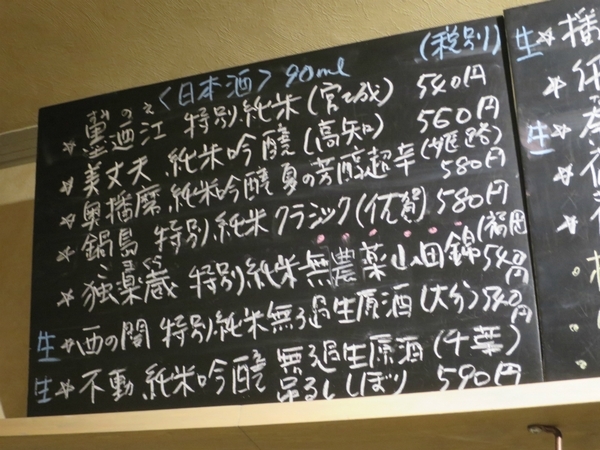 〈日本酒〉 90ml (税別)
特別純米 (宮城) 540円
美丈夫 純米吟醸 (高知) 560円
奥播磨 純米吟醸 夏の芳醇超辛 (姫路) 580円
鍋島 特別純米 クラシック (佐賀) 580円
独楽蔵 特別純米 無農薬山田錦 (福岡) 540円
こまぐら
生 ☆西の関 特別純米無ろ過生原酒 (大分) 540円
生 ☆不動 純米吟醸 無ろ過生原酒 (千葉) 590円
吊るししぼり
生☆播
生☆